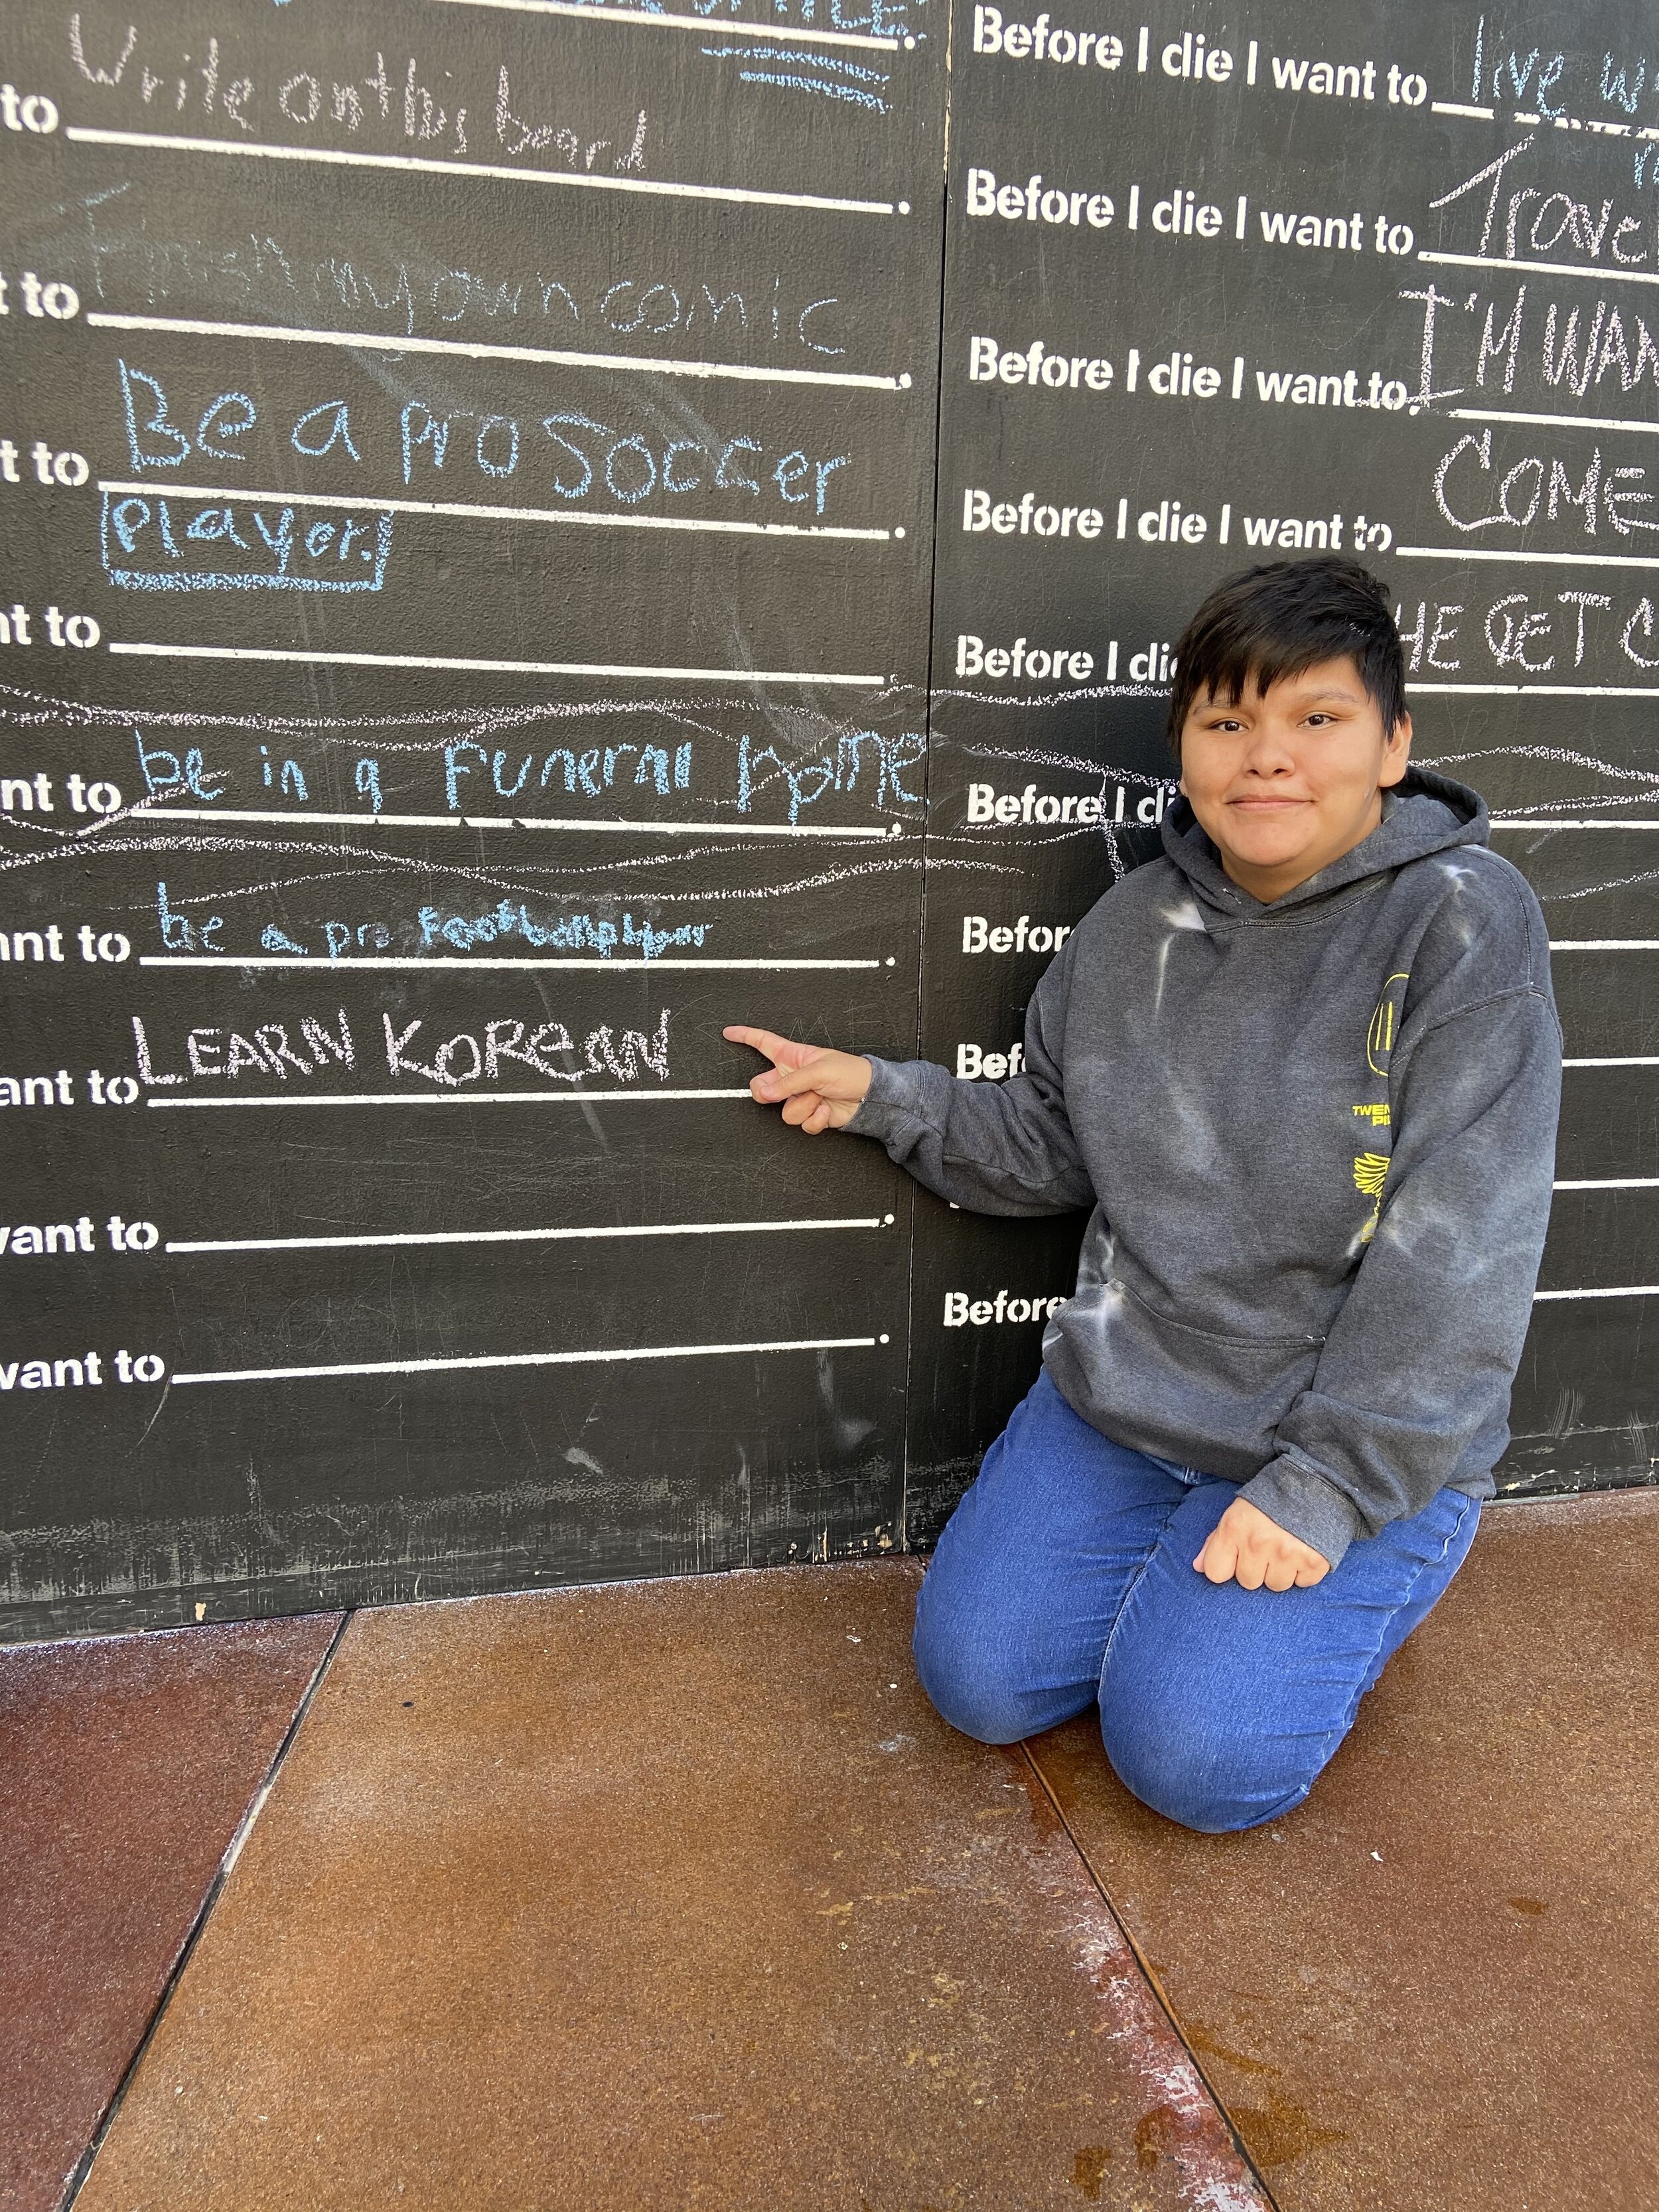 to Write on this board.
t to my own comic.
t to Be a pro soccer.
player.
nt to.
nt to be in a Funeral home.
ant to be a pro football player.
ant to LEARN KOREAN
want to.
want to.
Before I die I want to live
Before I die I want to Travel
Before I die I want to I'M
Before I die I want to COME
Before I die HE GET
Before I di
Before
Before
Before
TWEN
PI